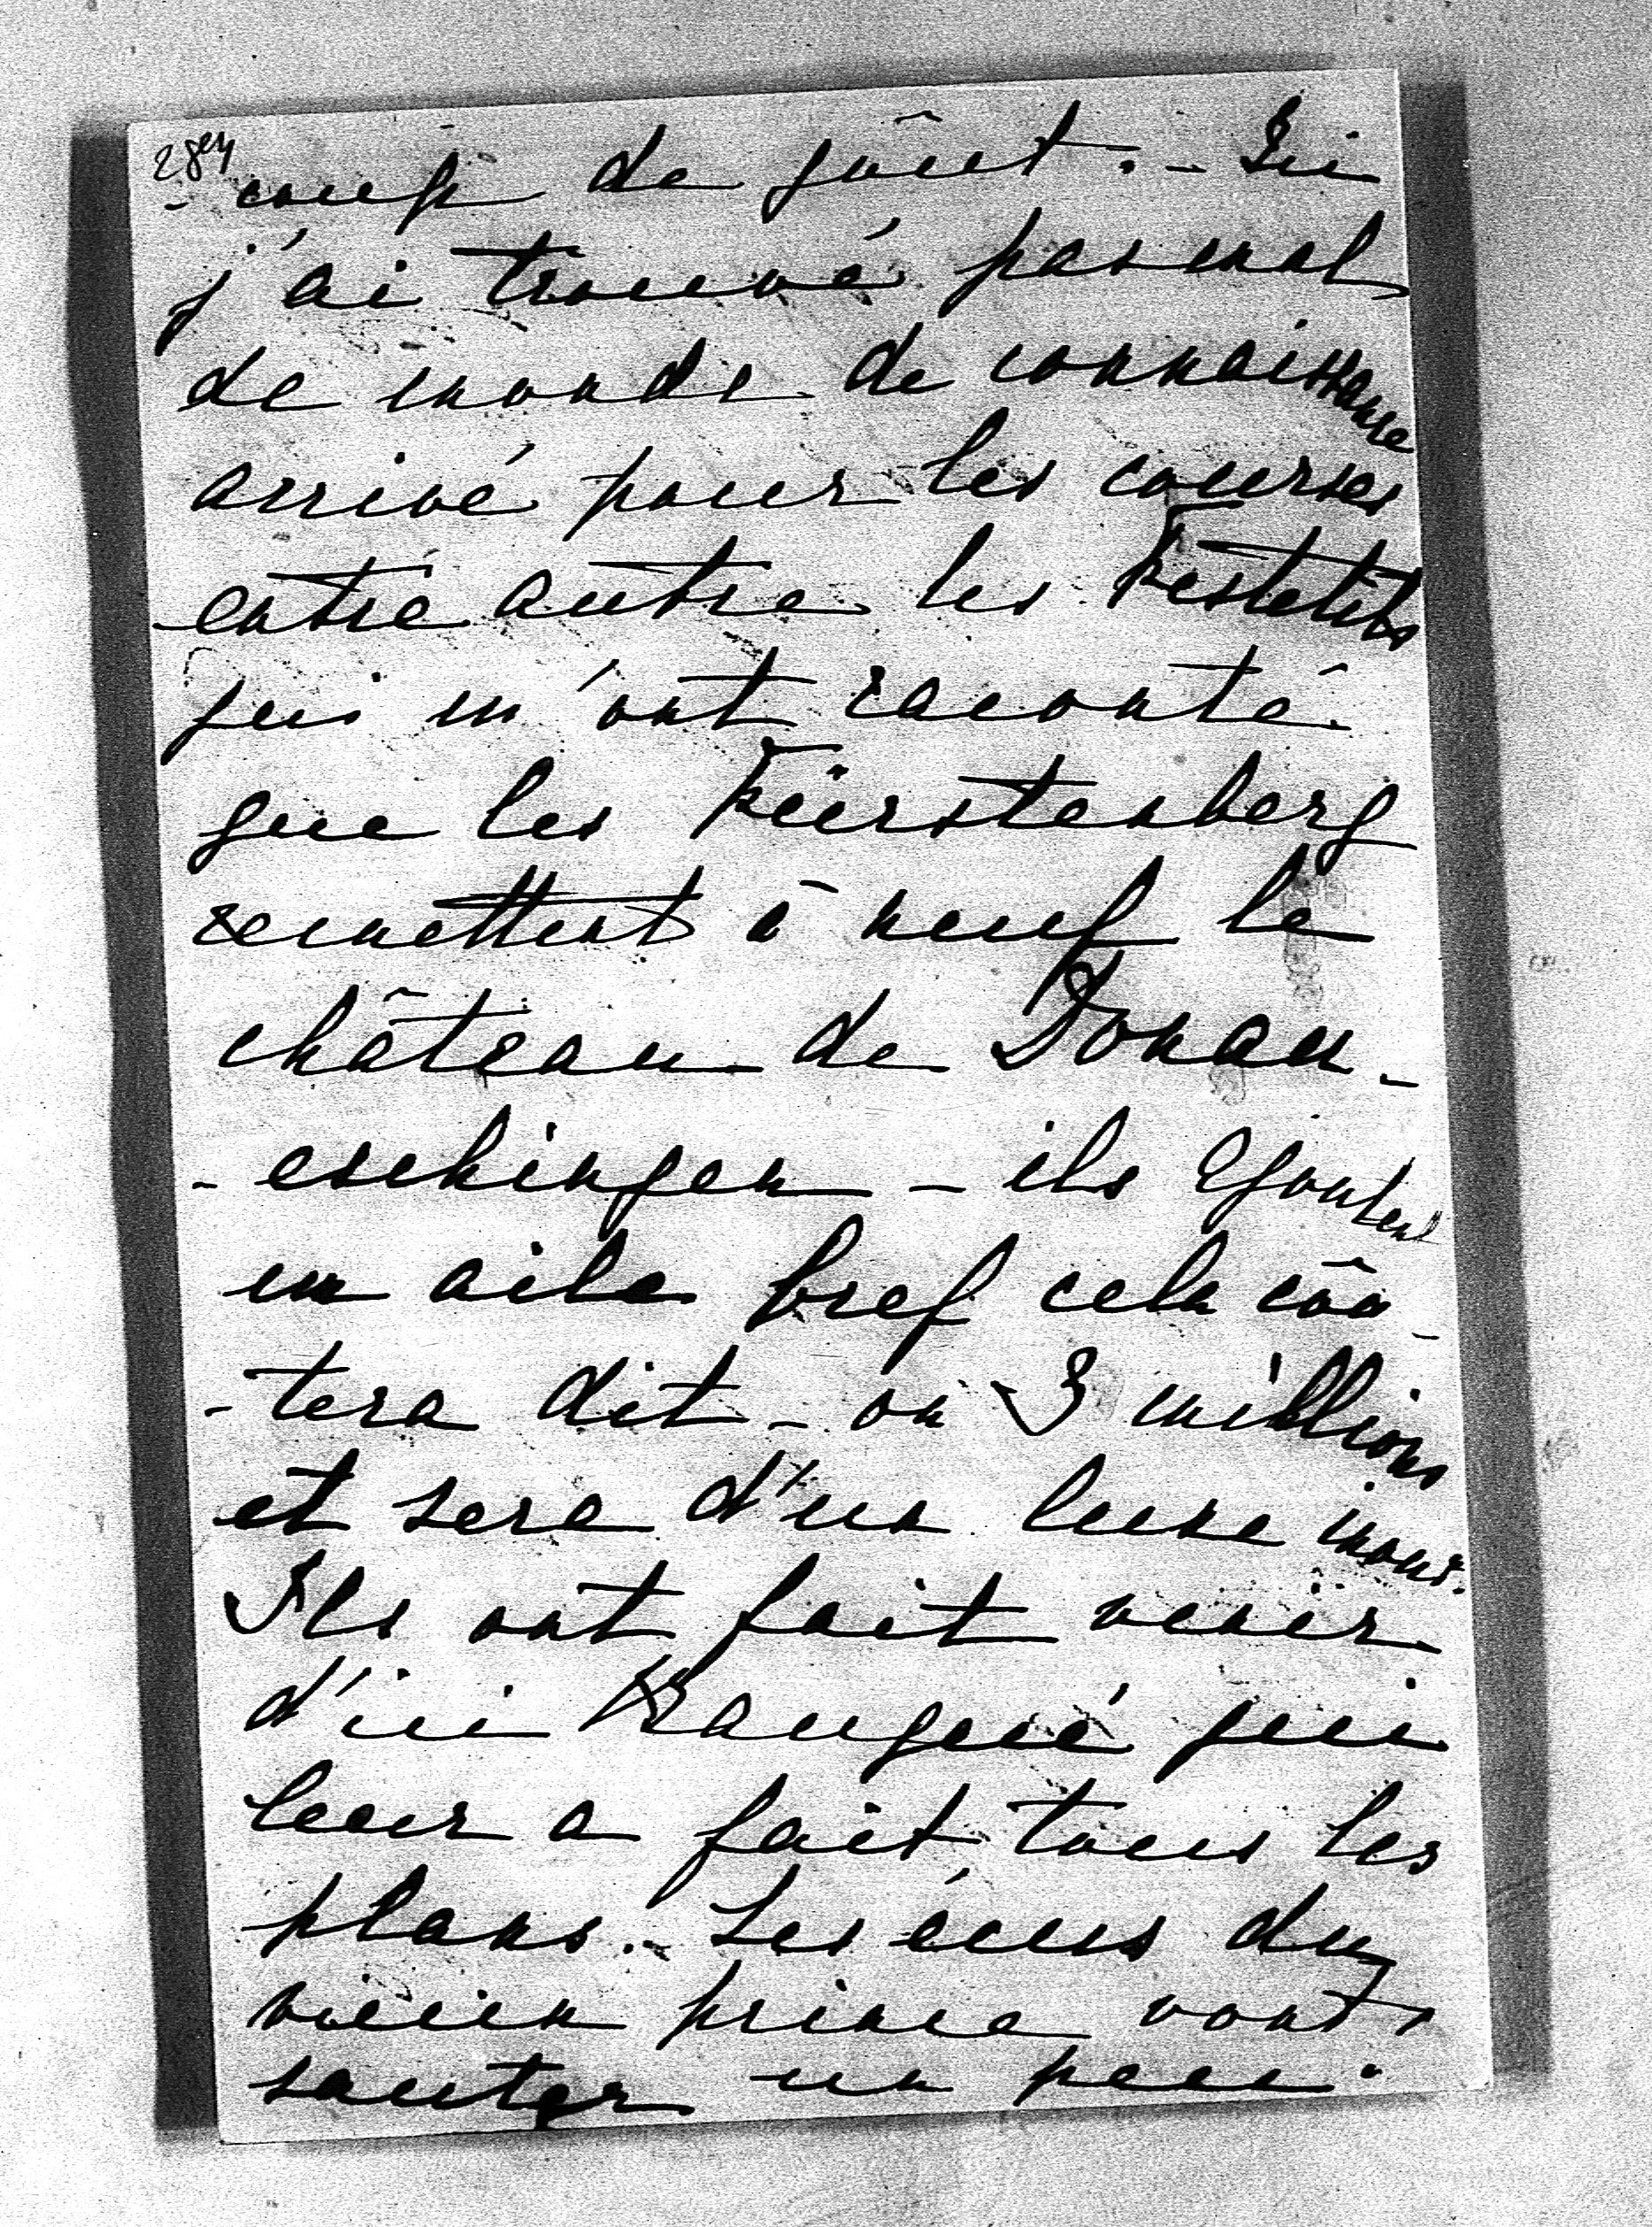 - coup de goût. - Ici
j'ai trouvé pas mal
de monde de connaissance
arrivé pour les courses
entre autre les Festetits
qui m'ont raconté
que les Fürstenberg
remettent à neuf le
château de Donau-
- eschingen - ils ajoutent
un aile bref cela coû-
- tera dit-on 3 millions
et sera d'un luxe inouï.
Ils ont fait venir
d'ici qui
leur a fait tous les
plans. - Les écus du
vieux prince vont
sauter un peu.